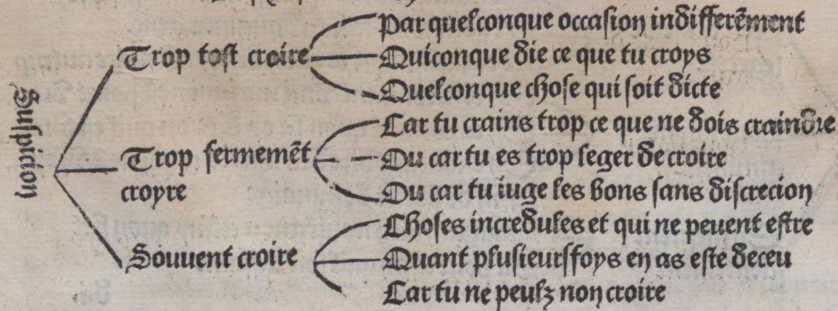 Suspicion
Trop tost croire
Par quelconque occasion indifferēment
Quiconque die ce que tu croys
Quelconque chose qui soit dicte
Trop fermemēt
croyre
Car tu crains trop ce que ne dois craindre
Ou car tu es trop leger de croire
Ou car tu iuge les bons sans discrecion
Souvent croire
Choses incredules et qui ne peuent estre
Quant plusieurs foys en as este deceu
Car tu ne peulz non croire